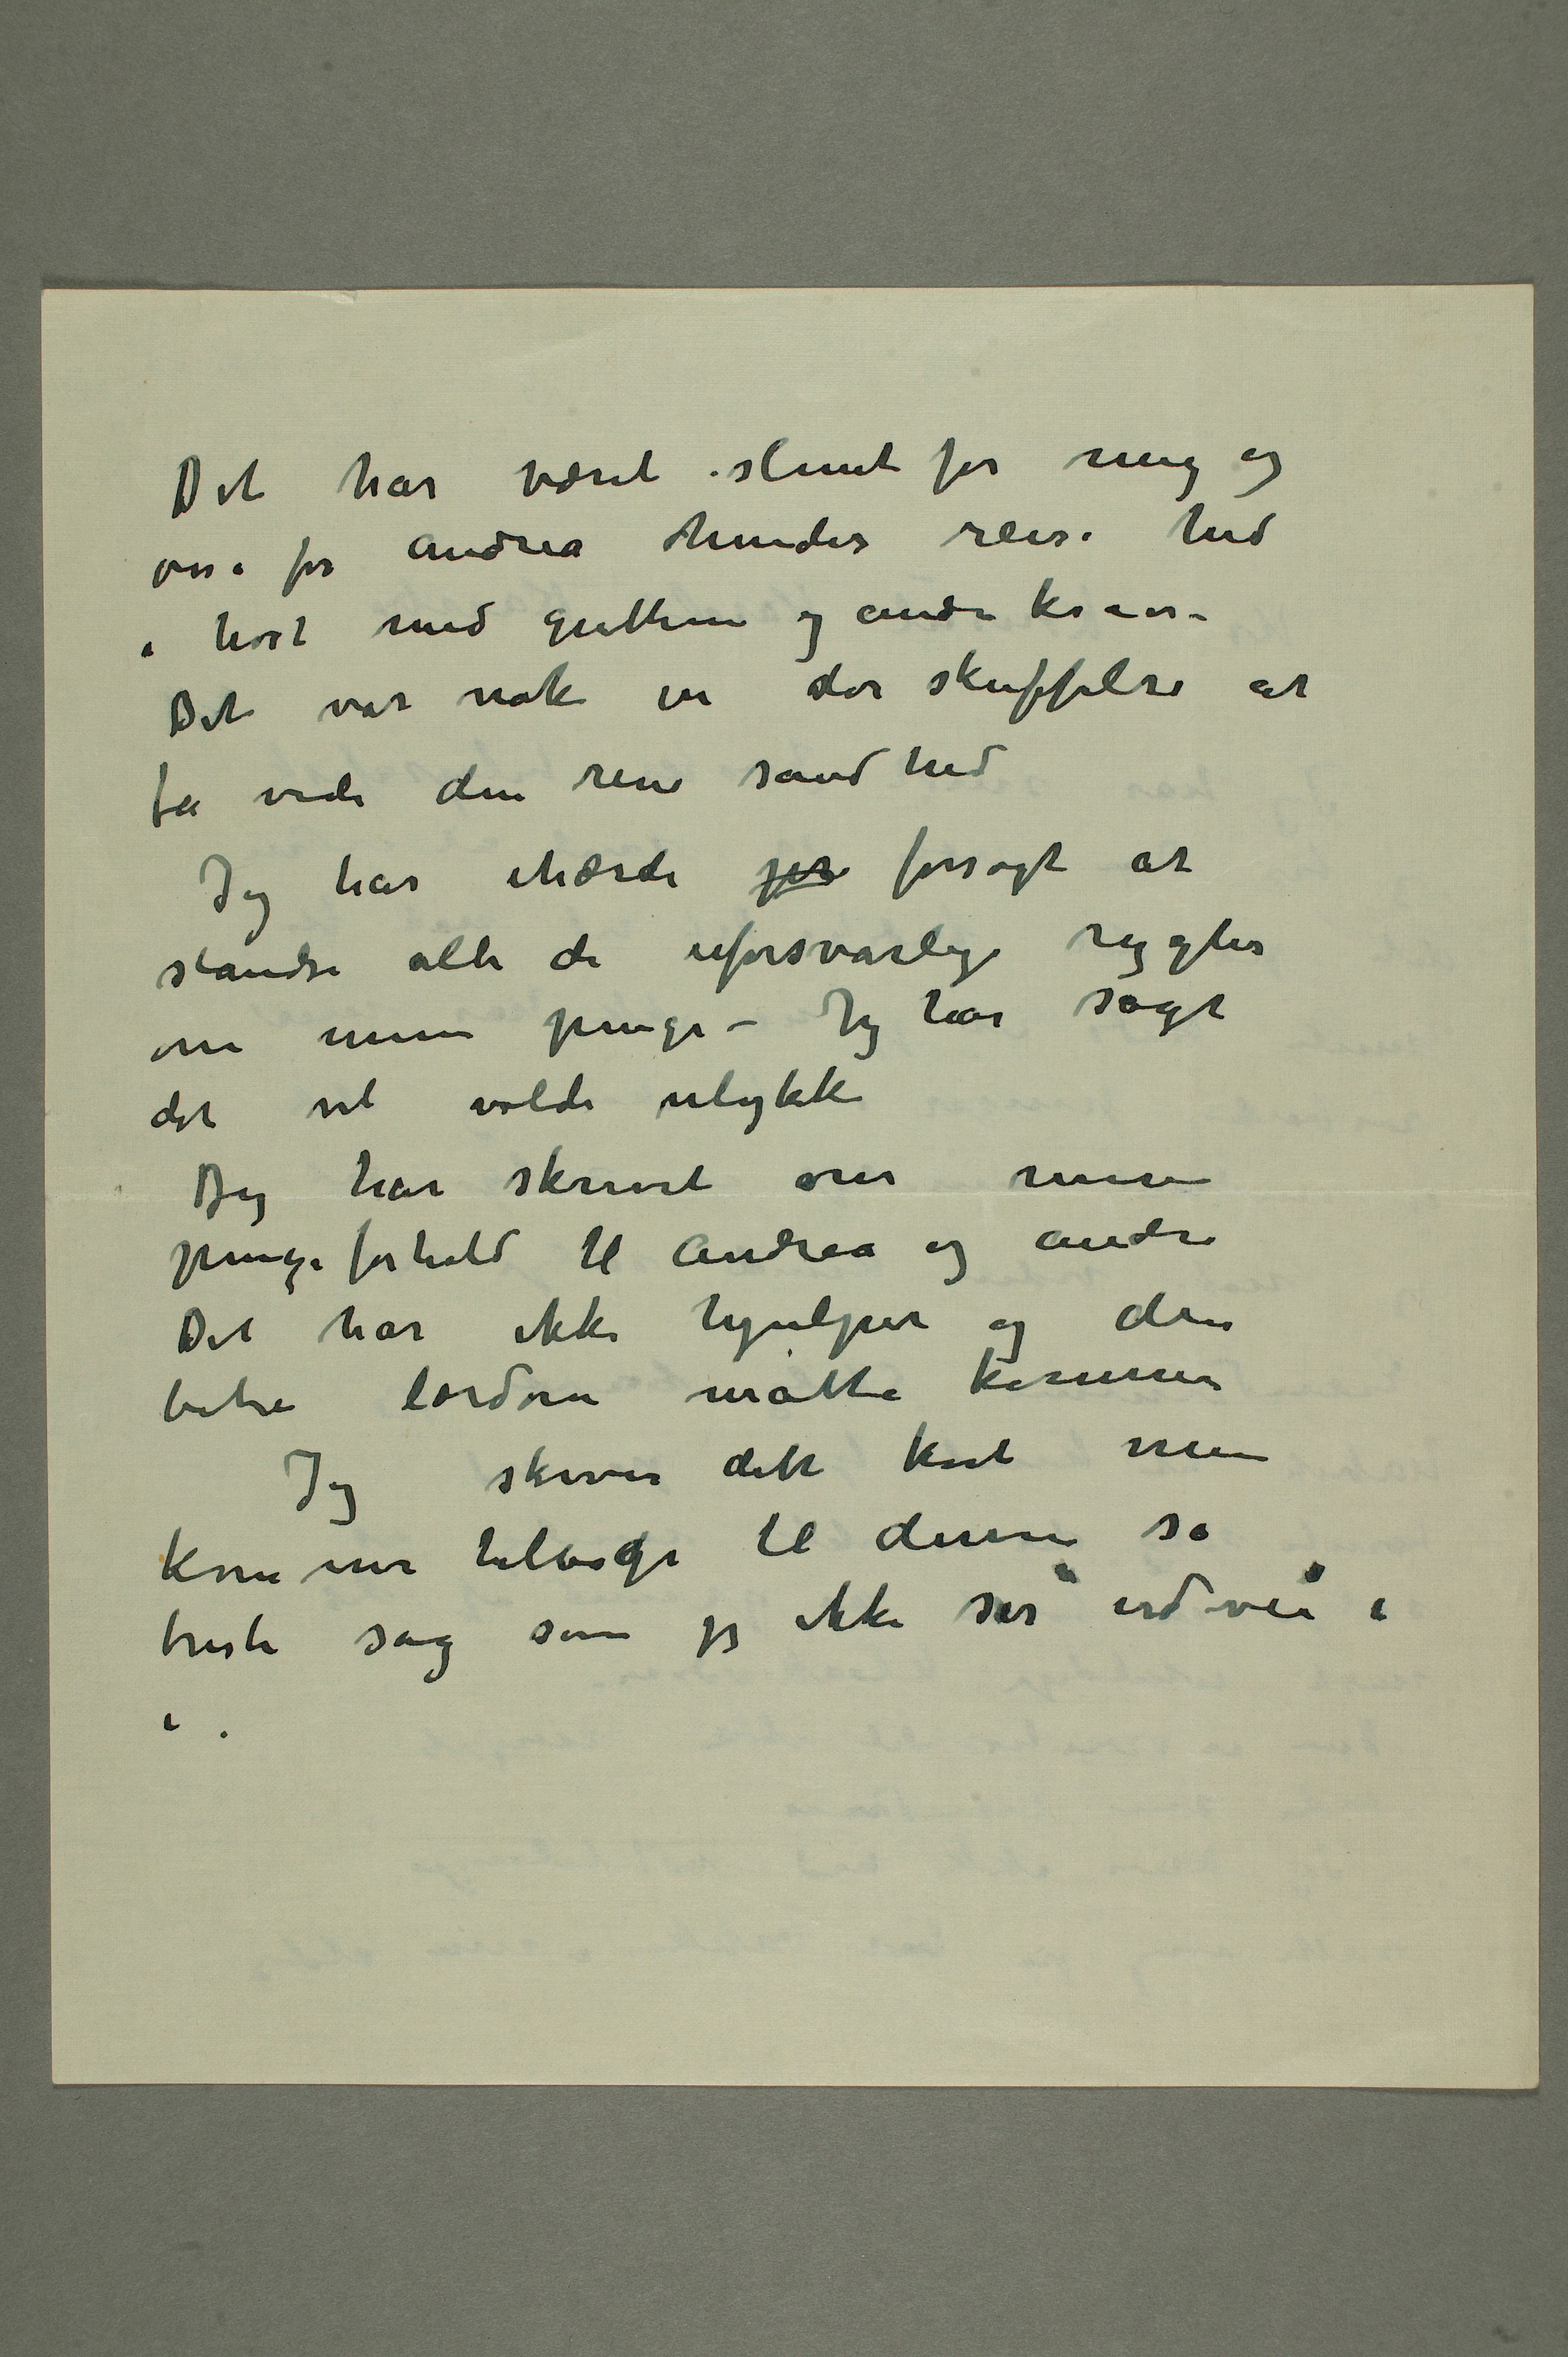 Det har været slemt for meg og
osså for Andrea hendes reise hid
i høst med guttene og andre kraor.
Det var nok en stor skuffelse at
få vide den rene sandhed
Jeg har iherdi forsøgt at
standse alle de uforsvarlige rygter
om mine penge – Jeg har sagt
det vil volde ulykke
Jeg har skrevet om mine
pengeforhold til Andrea og andre
Det har ikke hjulpet og den
bitre lærdom måtte komme
Jeg skriver dette kort men
kommer tilbage til denne så
triste sag som jeg ikke ser udvei i
i .